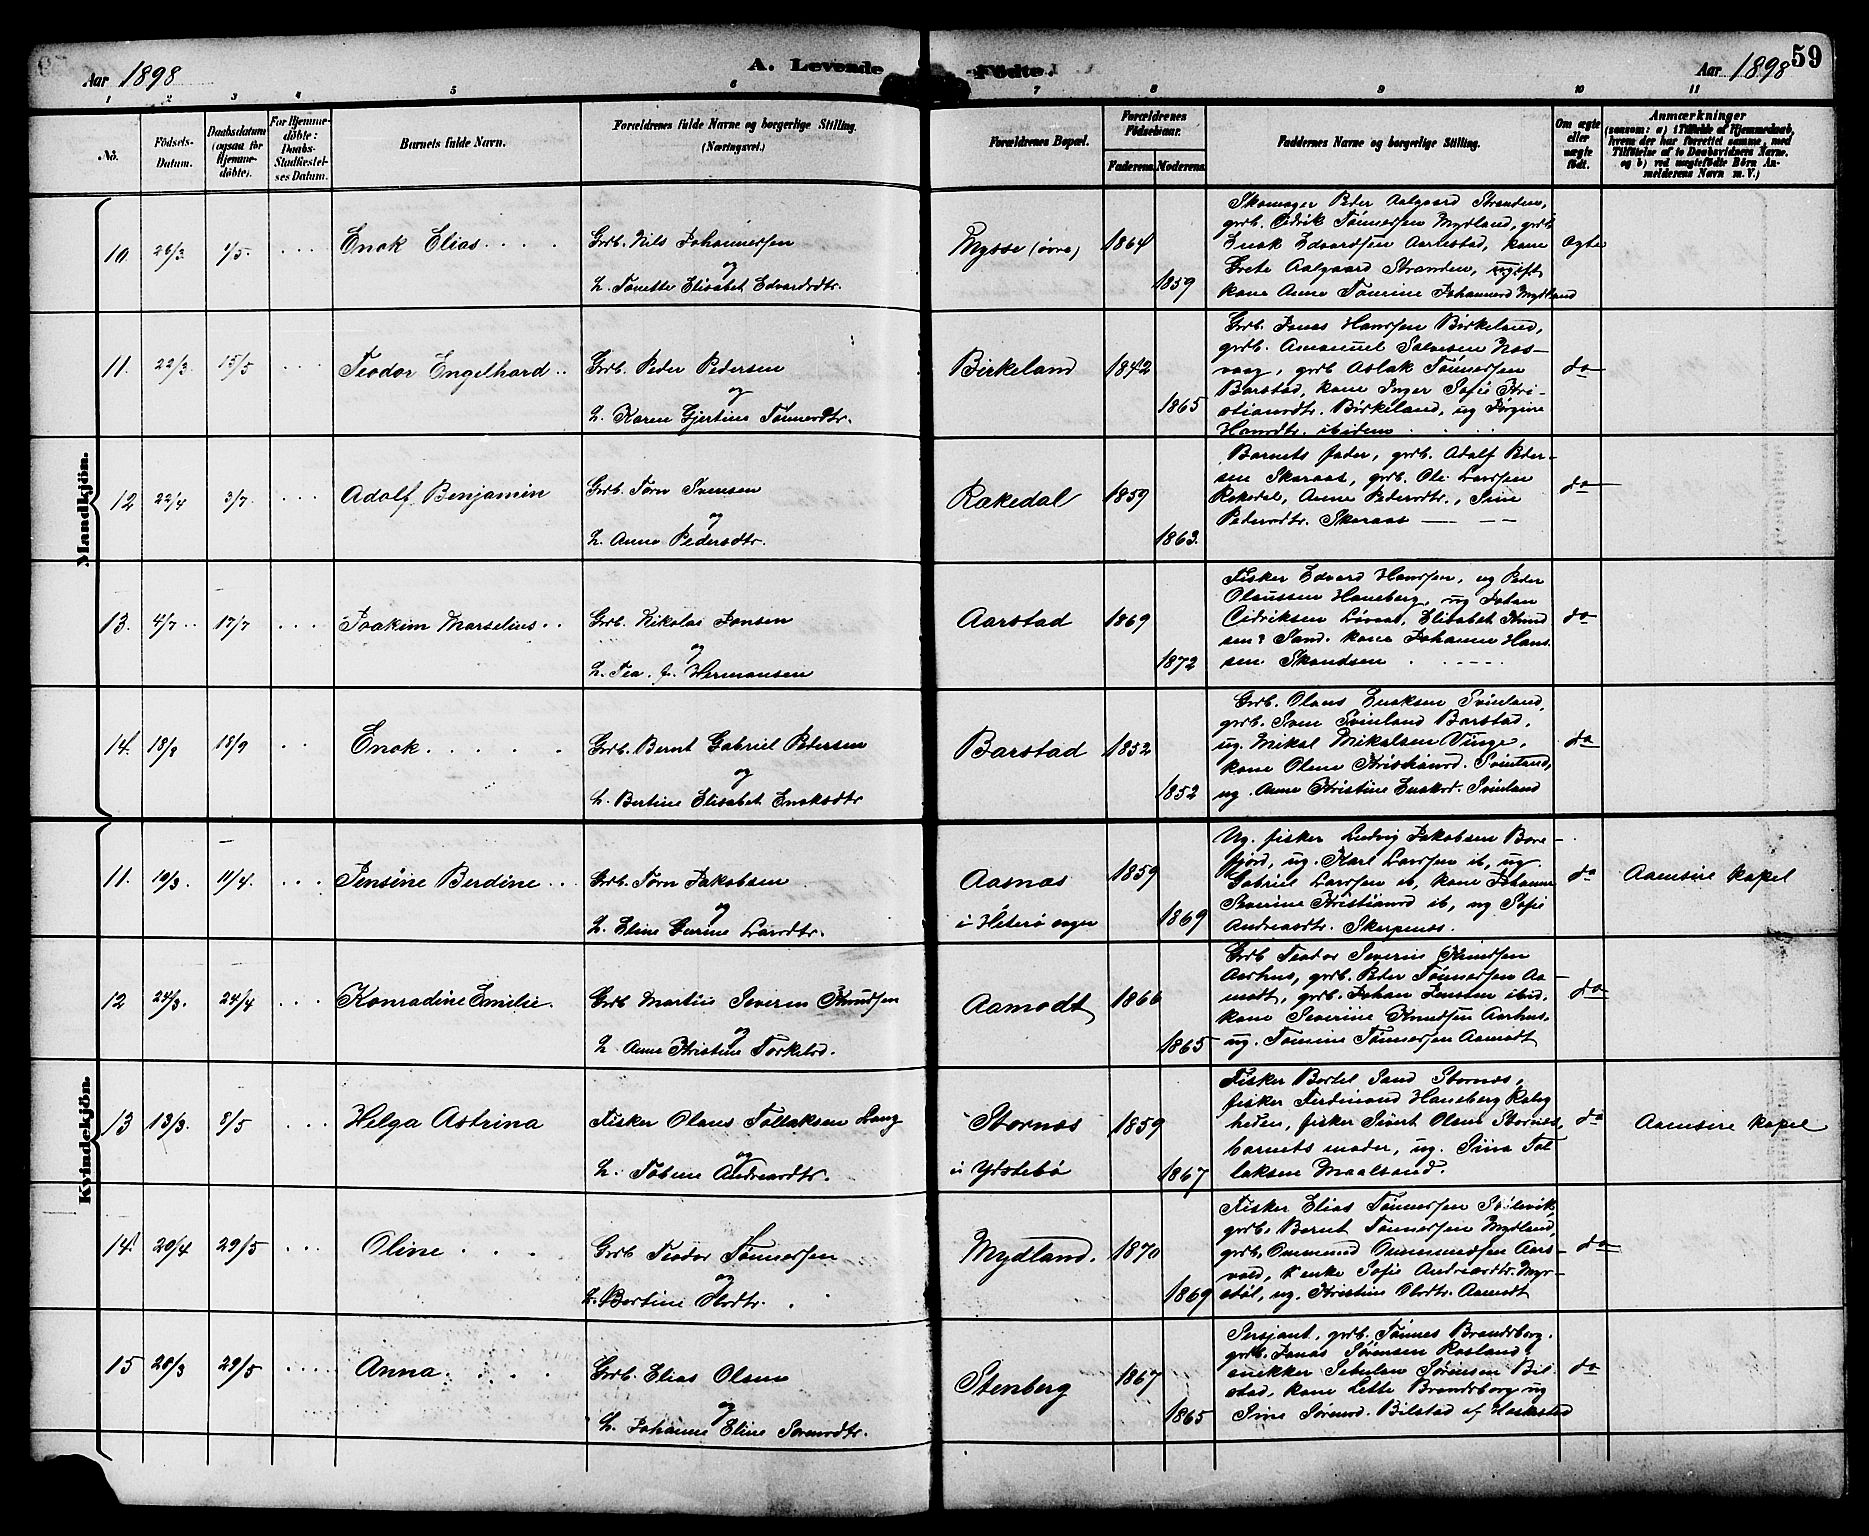 59
Aar 1898
A. Levende
Födte.
Aar 1898
1 2 3 4 5 6 7 8 9 10 11
No.
Födsels-
Datum.
Daabsdatum
(ogsaa for
Hjemme-
döbte).
For Hjemme-
döbte:
Daabs-
Stadfæstel-
ses Datum.
Barnets fulde Navn.
Forældrenes fulde Navne og borgerlige Stilling.
(Næringsvei.)
Forældrenes Bopæl.
Forældrenes
Födselsaar.
Faderens Moderens
Faddernes Navne og borgerlige Stilling.
Om ægte
eller
uægte
födt.
Anmærkninger
(saasom: a) i Tilfælde af Hjemmedaab,
hvem der har forrettet samme, med
Tilföielse af to Daabsvidners Navne,
og b) ved uægtefödte Börn An-
melderens Navn m. V.)
Mandkjön.
10 26/3 1/5 Enok Elias
Grb. Nils Johannessen
og
H. Tonette Elisabet Edvardsdtr.
Mysse (övre) 1864
1859
Skomager Peder Aalgaard Stranden,
grb. Cedrik Tönnessen Mydland, grb
Enok Edvardsen Aarrestad, kone
Grete Aalgaard Stranden, ugift
kone Anne Tomine Johannesd Mydland
ægte
11. 22/3 15/5 Teodor Engelhard
Grb. Peder Pedersen
og
H. Karen Gjertine Tönnesdtr.
Birkeland 1842
1865
Grb. Jonas Hanssen Birkeland,
grb. Amanuel Salvesen Nos-
vaag, grb Aslak Tönnessen
Barstad, kone Inger Sofie Kri-
stiansdtr. Birkeland, ug Jörgine
Hansdtr. ibidem
do
12 22/4 3/7 Adolf Benjamin
Grb. Törn Svensen
og
H. Anne Pedersdtr.
Rakedal 1859
1863.
Barnets fader, grb. Adolf Peder-
sen Skaraas, grb. Ole Larssen
Rekedal, Anne Pedersdtr., Sine
Pedersdtr. Skaraas
do
13. 4/7 17/7 Joakim Marselius
Grb. Nikolai Jonsen
og
H. Tea J. Hermansen
Aarstad 1869
1872
Fisker Edvard Hanssen, ug Peder
Olaussen Haneberg, ug Johan
Cedriksen Lövaas, Elisabet Knud
sen? Sand. kone Johanne Hans
sen Skandsen
do
14. 18/8 18/9 Enok
Grb. Bernt Gabriel Petersen
og
H. Bertine Elisabet Enoksdtr
Barstad 1852
1852
Grb. Olaus Enoksen Svinland,
grb. Sven Svinland Barstad,
ug. Mikal Mikalsen Vinge,
kone Olene Kristiansd. Svinland,
ug. Anne Kristine Enoksd. Svinland
do
Kvindekjön.
11. 19/3. 11/4. Jensine Berdine
Grb. Törn Jakobsen
og
H. Eline Gurine Larsdtr.
Aasnas
i Heterö sogn
1859
1869
Ug. fisker Ludvig Jakobsen Bore-
fjord, ug. Karl Larssen ib, ug.
Gabriel Larssen ib, kone Johanne
Severine Kristiansd ib, ug Sofie
Andreasdtr. Skerpenes.
do
Aamsire kapel
12 24/3. 24/4 Konradine Emilie.
Grb Martin Severin Knudsen
og
H Anne Kristine Torkelsd.
Aamodt 1866
1865
Grb Teodor Severin Knudsen
Aarhus, grb. Peder Tönnessen Aa-
modt, grb. Johan Jensen ibid.
kone Severine Knudsen Aarhus,
ug. Tomine Tönnessen Aamodt
do
13 13/3. 8/5 Helga Astrina
Fisker Olaus Tollaksen Haug
og
H. Tobine Andreasdtr.
Stornas
i Ydstebö
1859
1867
Fisker Bertel Sand Stornæs,
fisker Ferdinand Haneberg Rabeg
heden, fisker Sivert Olsen Stornæs,
barnets moder, ug. Sina Tol
laksen Maalsand.
do
Aamsire kapel
14. 20/4 29/5 Oline
Grb Teodor Tönnessen
og
H. Bertine Olsdtr.
Mydland. 1870
1869
Fisker Elias Tönnessen Solevik
grb. Bernt Tönnessen Mydland,
grb. Ommund Ommundsen Aars-
vold, enke Sofie Andreasdtr. Myr-
stöl, ug. Kristine Olsdtr. Aamodt
do
15 28/3 29/5 Anna
Grb. Elias Olsen
og
H. Johanne Eline Sörensdtr.
Stenberg 1867
1865
Sersjant, grb. Tönnes Brandsborg.
grb. Jonas Sörensen Rosland,
snekker Sebulon Sörensen Bil-
stad, kone Lette Brandsborg ug
Sine Sörensd. Bilstad af Heskestad
do